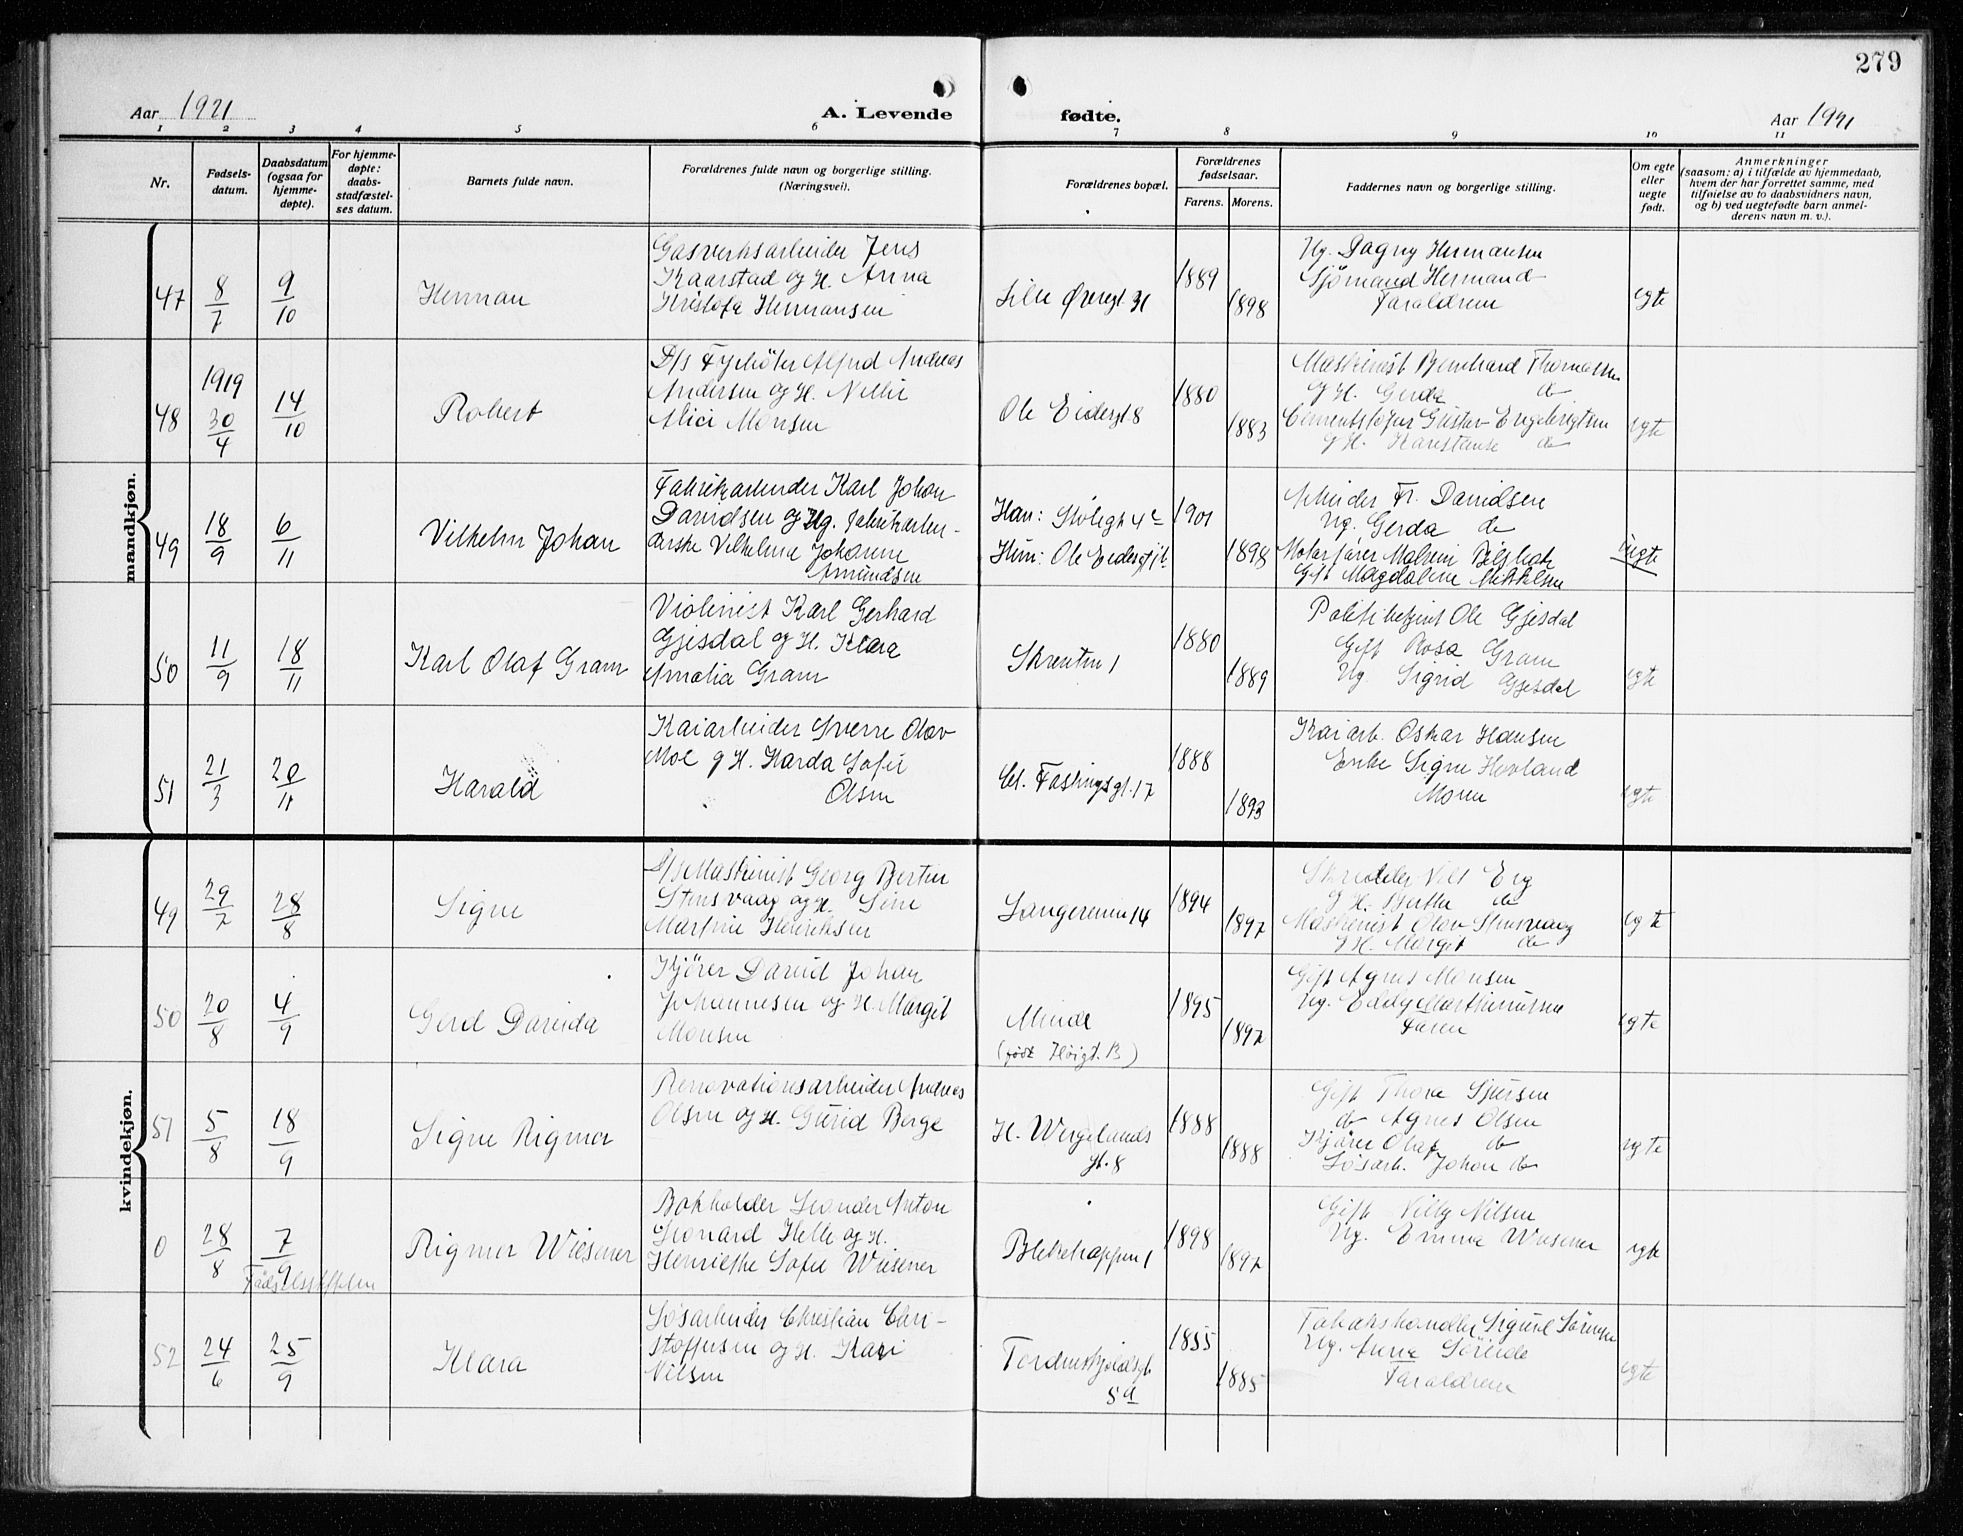 279
Aar 1921
A. Levende
fødte.
Aar 1921
1 2 3 4 5 6 7 8 9 10 11
Nr.
Fødsels-
datum.
Daabsdatum
(ogsaa for
hjemme-
døpte).
For hjemme-
døpte:
daabs-
stadfæstel-
ses datum.
Barnets fulde navn.
Forældrenes fulde navn og borgerlige stilling.
(Næringsvei).
Forældrenes bopæl.
Forældrenes
fødselsaar.
Farens. Morens.
Faddernes navn og borgerlige stilling.
Om egte
eller
uegte
født.
Anmerkninger
(saasom: a) i tilfælde av hjemmedaab,
hvem der har forrettet samme, med
tilføielse av to daabsvidners navn,
og b) ved uegtefødte barn anmel-
derens navn m. v.).
mandkjøn.
47 8/7 9/10 Herman
Gasverksarbeider Jens
Kaarstad og H. Anna
Kristofa Hermansen
Lille Øvregt 31
1889 1898
Ug. Dagny Hermansen
Sjømand Hermand
Faraldrene
egte
48 1919 30/4 14/10 Robert
D/s Fyrbøter Alfred Andreas
Andersen og H. Nellie
Alice Monsen
Ole Eidesgt 8
1880 1883
Maskinist Bernhard Thomassen
og H. Gerda do
Cementstøper Gustav Engebrigtsen
g H. Konstanse do
egte
49 18/9 6/11 Vilhelm Johan
Fabrikarbeider Karl Johan
Davidsen og Ug. fabrikarbei-
derske Vilhelmine Johanne
Amundsen
Han: Stølegt 4c
Hun: Ole Eidesgt
1901 1898
Arbeider Fr. Davidsen
Ug. Gerda do
Motorfører
Gift Magdalene Mikkelsen
uegte
50 11/9 18/11 Karl Olaf Gram
Violinist Karl Gerhard
Gjesdal og H. Klara
Amalia Gram
Skrenten 1
1880 1889
Politibetjent Ole Gjesdal
Gift Rosa Gram
Ug. Sigrid Gjesdal
egte
51 21/3 20/11 Harald
Kaiarbeider Sverre Olav
Moe g H. Harda Sofie
Olsen
C. Fastingsgt. 17
1888 1893
Kaiarb. Oskar Hansen
Enke Signe Hovland
Moren
egte
kvindekjøn.
49 29/7 28/8 Signe
D/s Maskinist Georg Bertin
Stensvaag og H. Sine
Martine Henriksen
Langereinen 14
1894 1897
Skredder Nils Eeg
g H. Berthe do
Maskinist Olav Stensvaag
g H. Margit do
egte
50 20/8 4/9 Gerd Davida
Kjører David Johan
Johannesen og H. Margit
Monsen
Minde
(født Høigt. 13)
1895 1897
Gift Agnes Monsen
Ug. Eddy Marthinussen
Faren
egte
51 5/8 18/9 Signe Rigmor
Renovationsarbeider Andreas
Olsen og H. Gurid Berge
H. Wergelands
gt. 8
1888 1888
Gift Thora Sjursen
do Agnes Olsen
Kjører Olaf do
Løsarb. Johan do
egte
0 28/8 7/9 Rigmor Wiesener
Fødselsstiftelsen
Bokholder Leander Anton
Leonard Helle og H.
Henriette Sofie Wiesener
Blekehappen 1
1898 1897
Gift Villy Nilsen
Ug. Emma Wiesener
egte
52 24/6 25/9 Klara
Løsarbeider Christian Chri-
stoffersen og H. Kari
Nilsen
Tordenskjoldsgt
5a
1855 1885
Tobakshandler Sigurd Sørensen
Ug. Anna Søreide
Faraldrene
egte